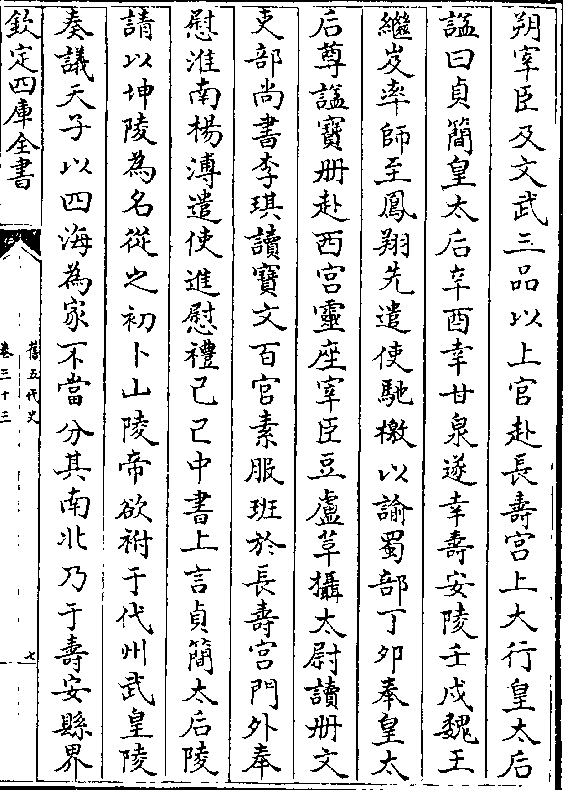 朔宰臣及文武三品以上官赴長壽宮上大行皇太后
諡曰貞簡皇太后辛酉幸甘泉遂幸壽安陵壬戌魏王
繼岌率師至鳳翔先遣使馳檄以諭蜀部丁卯奉皇太
后尊諡寶册赴西宮靈座宰臣豆盧革攝太尉讀册文
吏部尚書李琪讀寶文百官素服班於長壽宮門外奉
慰淮南楊溥遣使進慰禮己巳中書上言貞簡太后陵
請以坤陵為名從之初卜山陵帝欲祔于代州武皇陵
奏議天子以四海為家不當分其南北乃于壽安縣界
欽定四庫全書
舊五代史
卷三十三
七